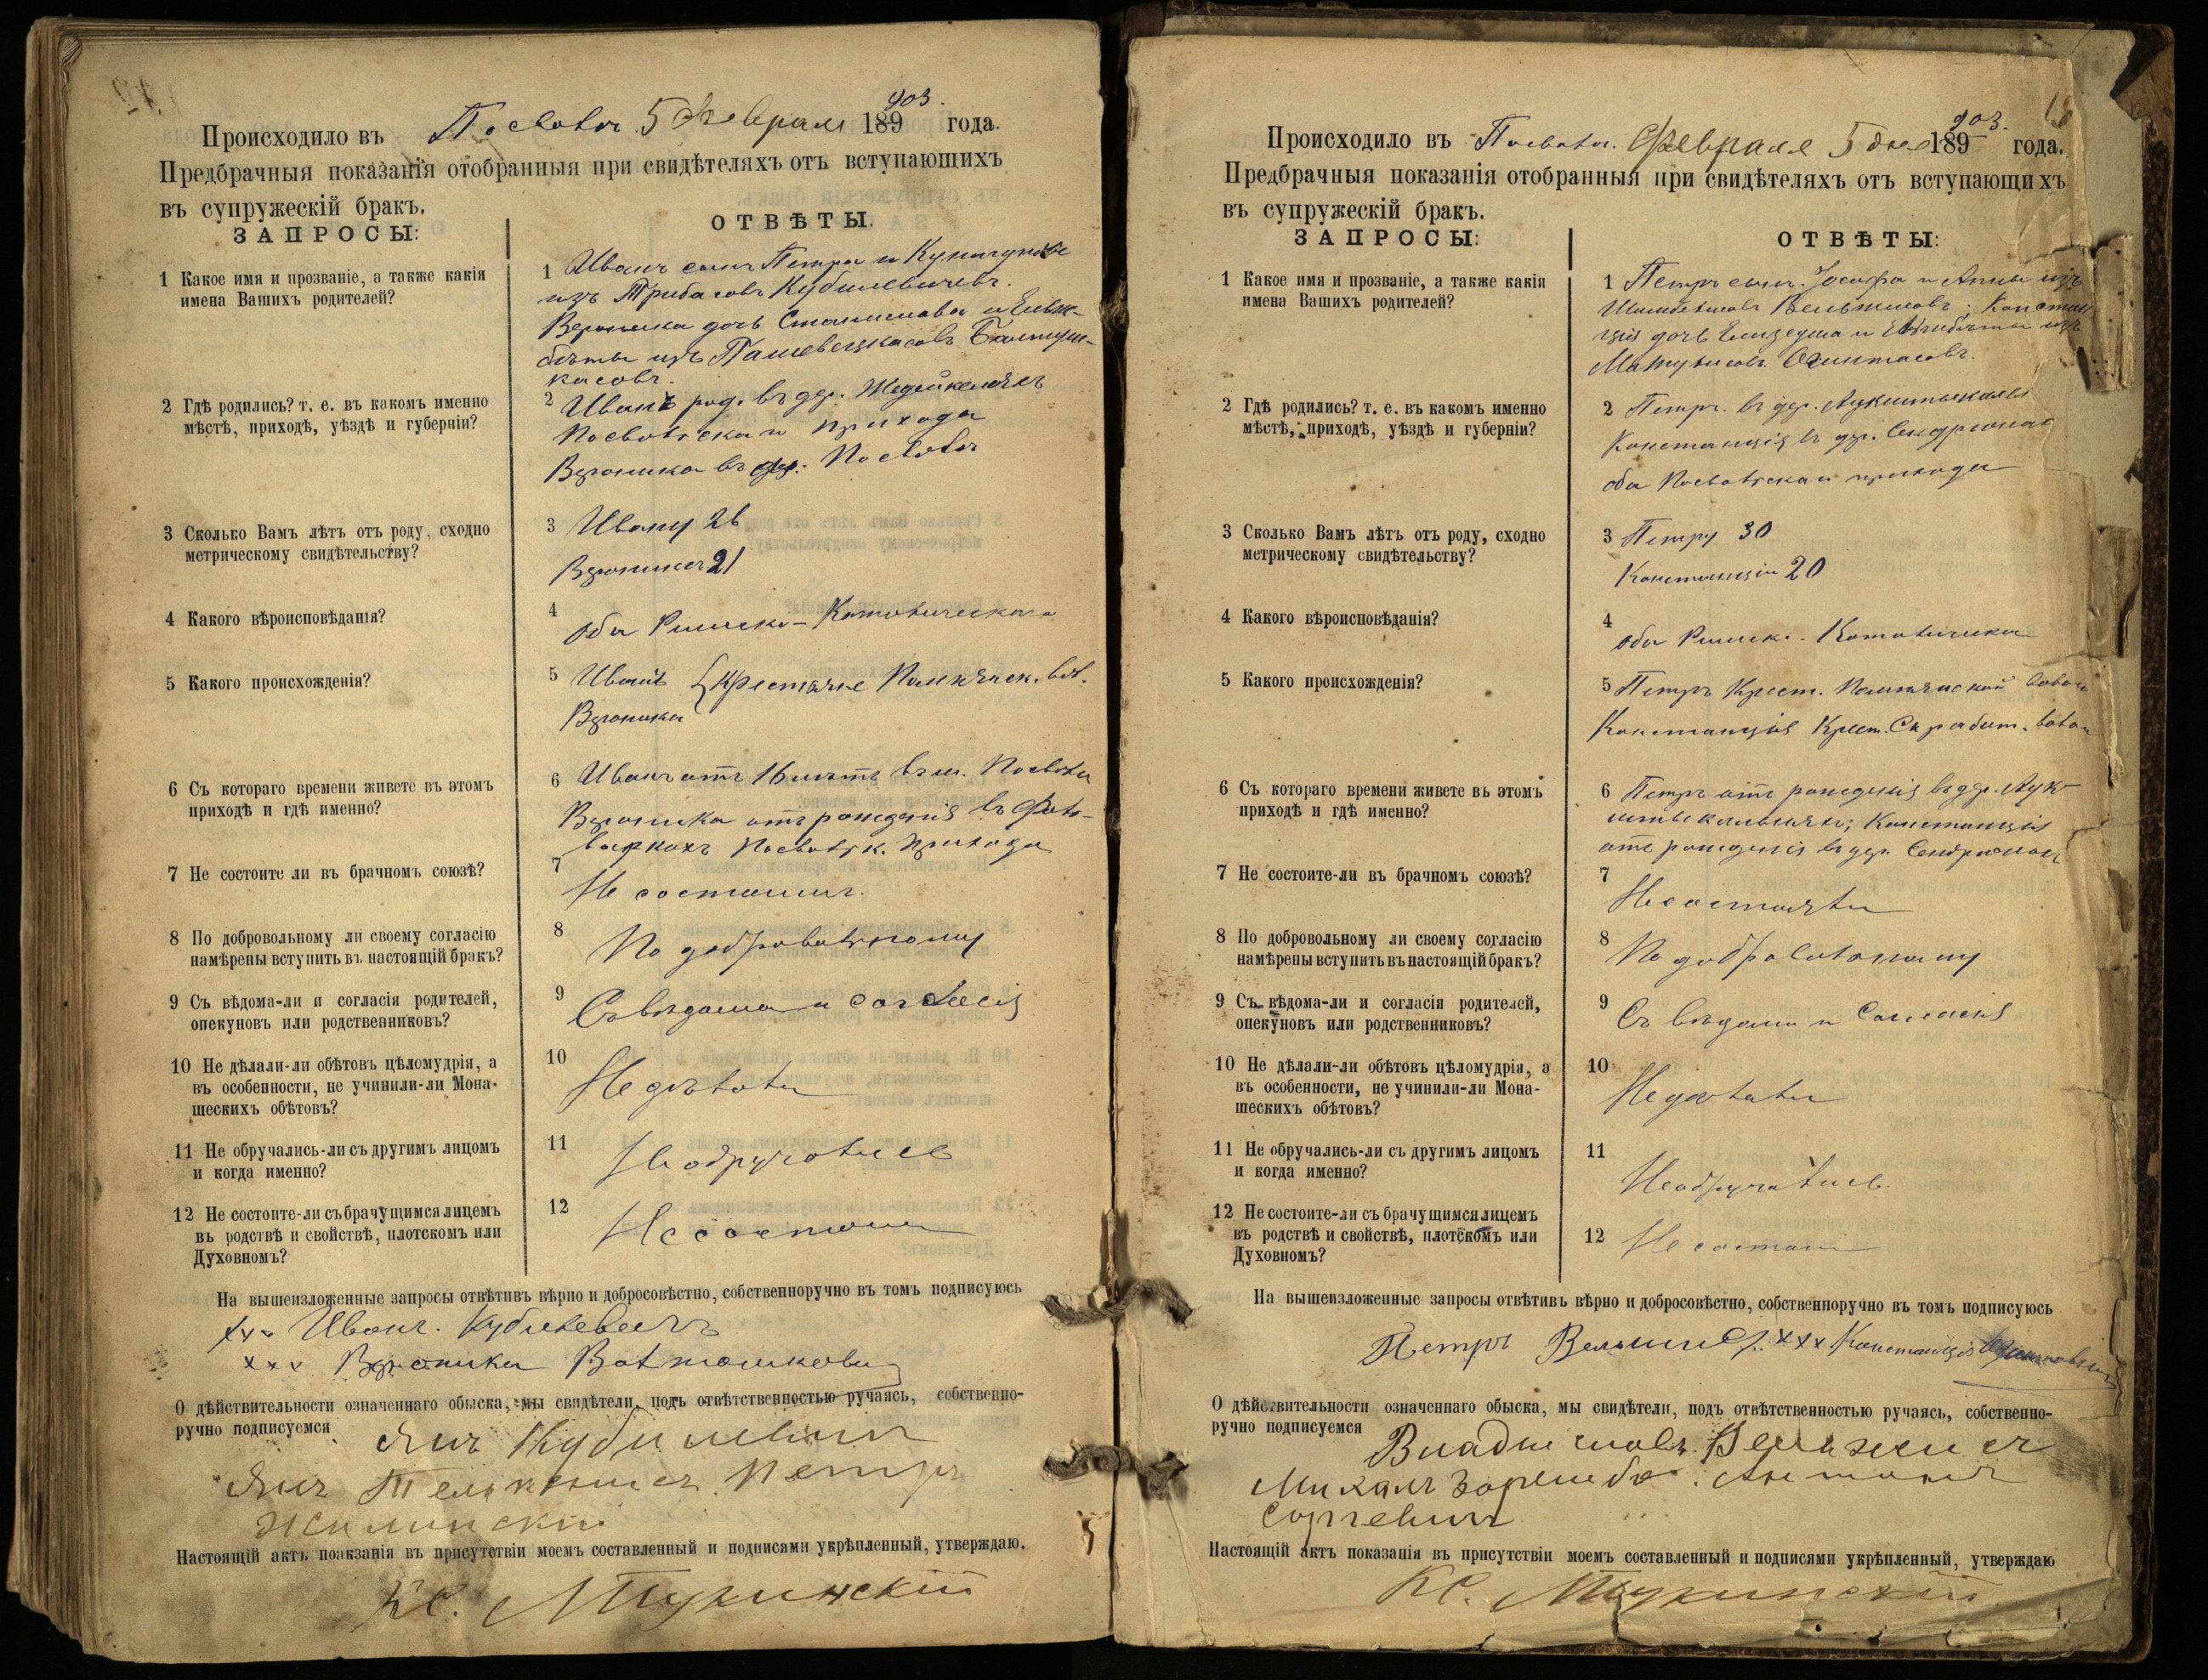 Происходило въ Посволь 5 Февраля 189 903. года.
Предбрачныя показанія отобранныя при свидѣтеляхъ отъ вступающихъ
въ супружескій бракъ.
ЗАПРОСЫ:
ОТВѢТЫ.
1 Какое имя и прозваніе, а также какія
имена Вашихъ родителей?
1 Иванъ сынъ Петра и
изъ Кубилевичевъ.
Вероника дочь Станислава и Елиза-
беты изъ
касовъ.
2 Гдѣ родились? т. е. въ какомъ именно
мѣстѣ, приходѣ, уѣздѣ и губерніи?
2 Иванъ род. въ дер.
Посвольскаго прихода
Вероника въ дер. Посволь
3 Сколько Вамъ лѣтъ отъ роду, сходно
метрическому свидѣтельству?
3 Ивану 26
Вероникѣ 21
4 Какого вѣроисповѣданія?
4 оба Римско-Католическаго
5 Какого происхожденія?
5 Иванъ Крестьяне вол.
Вероника
6 Съ котораго времени живете въ этомъ
приходѣ и гдѣ именно?
6 Иванъ отъ 16 лѣтъ въ м. Посволь
Вероника отъ рожденія въ Фоль-
варкахъ Посвольск. прихода
7 Не состоите ли въ брачномъ союзѣ?
7 Не состоимъ.
8 По добровольному ли своему согласію
намѣрены вступить въ настоящій бракъ?
8 По добровольному
9 Съ вѣдома-ли и согласія родителей,
опекуновъ или родственниковъ?
9 Съ вѣдома и согласія
10 Не дѣлали-ли обѣтовъ цѣломудрія, а
въ особенности, не учинили-ли Мона-
шескихъ обѣтовъ?
10 Не дѣлали
11 Не обручались-ли съ другимъ лицомъ
и когда именно?
11 Не обручались
12 Не состоите-ли съ брачущимся лицемъ
въ родствѣ и свойствѣ, плотскомъ или
Духовномъ?
12 Не состоимъ
На вышеизложенные запросы отвѣтивъ вѣрно и добросовѣстно, собственноручно въ томъ подписуюсь
xxx Иванъ Кубилевичъ
xxx Вероника
О дѣйствительности означеннаго обыска, мы свидѣтели, подъ отвѣтственностью ручаясь, собственно-
ручно подписуемся
Янъ Кубилевичъ
Янъ Петръ
Жилинскій
Настоящій актъ показанія въ присутствіи моемъ составленный и подписями укрѣпленный, утверждаю.
Кс.
Происходило въ Посволь. Февраля 5 дня 189 903. года.
Предбрачныя показанія отобранныя при свидѣтеляхъ отъ вступающихъ
въ супружескій бракъ.
ЗАПРОСЫ:
ОТВѢТЫ:
1 Какое имя и прозваніе, а также какія
имена Вашихъ родителей?
1 Петръ сынъ Іосифа и Анны изъ
Констан-
ція дочь и изъ
2 Гдѣ родились? т. е. въ какомъ именно
мѣстѣ, приходѣ, уѣздѣ и губерніи?
2 Петръ въ дер.
Констанція въ дер.
оба Посвольскаго прихода
3 Сколько Вамъ лѣтъ отъ роду, сходно
метрическому свидѣтельству?
3 Петру 30
Констанціи 20
4 Какого вѣроисповѣданія?
4 оба Римск. Католическа
5 Какого происхожденія?
5 Петръ Крест.
Констанція Крест.
6 Съ котораго времени живете въ этомъ
приходѣ и гдѣ именно?
6 Петръ отъ рожденія въ дер.
Констанція
отъ рожденія въ дер.
7 Не состоите-ли въ брачномъ союзѣ?
7 Не состояли
8 По добровольному ли своему согласію
намѣрены вступить въ настоящій бракъ?
8 По добровольному
9 Съ вѣдома-ли и согласія родителей,
опекуновъ или родственниковъ?
9 Съ вѣдома и согласія
10 Не дѣлали-ли обѣтовъ цѣломудрія, а
въ особенности, не учинили-ли Мона-
шескихъ обѣтовъ?
10 Не дѣлали
11 Не обручались-ли съ другимъ лицомъ
и когда именно?
11 Не обручались
12 Не состоите-ли съ брачущимся лицемъ
въ родствѣ и свойствѣ, плотскомъ или
Духовномъ?
12 Не состоимъ
На вышеизложенные запросы отвѣтивъ вѣрно и добросовѣстно, собственноручно въ томъ подписуюсь
Петръ xxx Констанція
О дѣйствительности означеннаго обыска, мы свидѣтели, подъ отвѣтственностью ручаясь, собственно-
ручно подписуемся
Настоящій актъ показанія въ присутствіи моемъ составленный и подписями укрѣпленный, утверждаю
Кс.